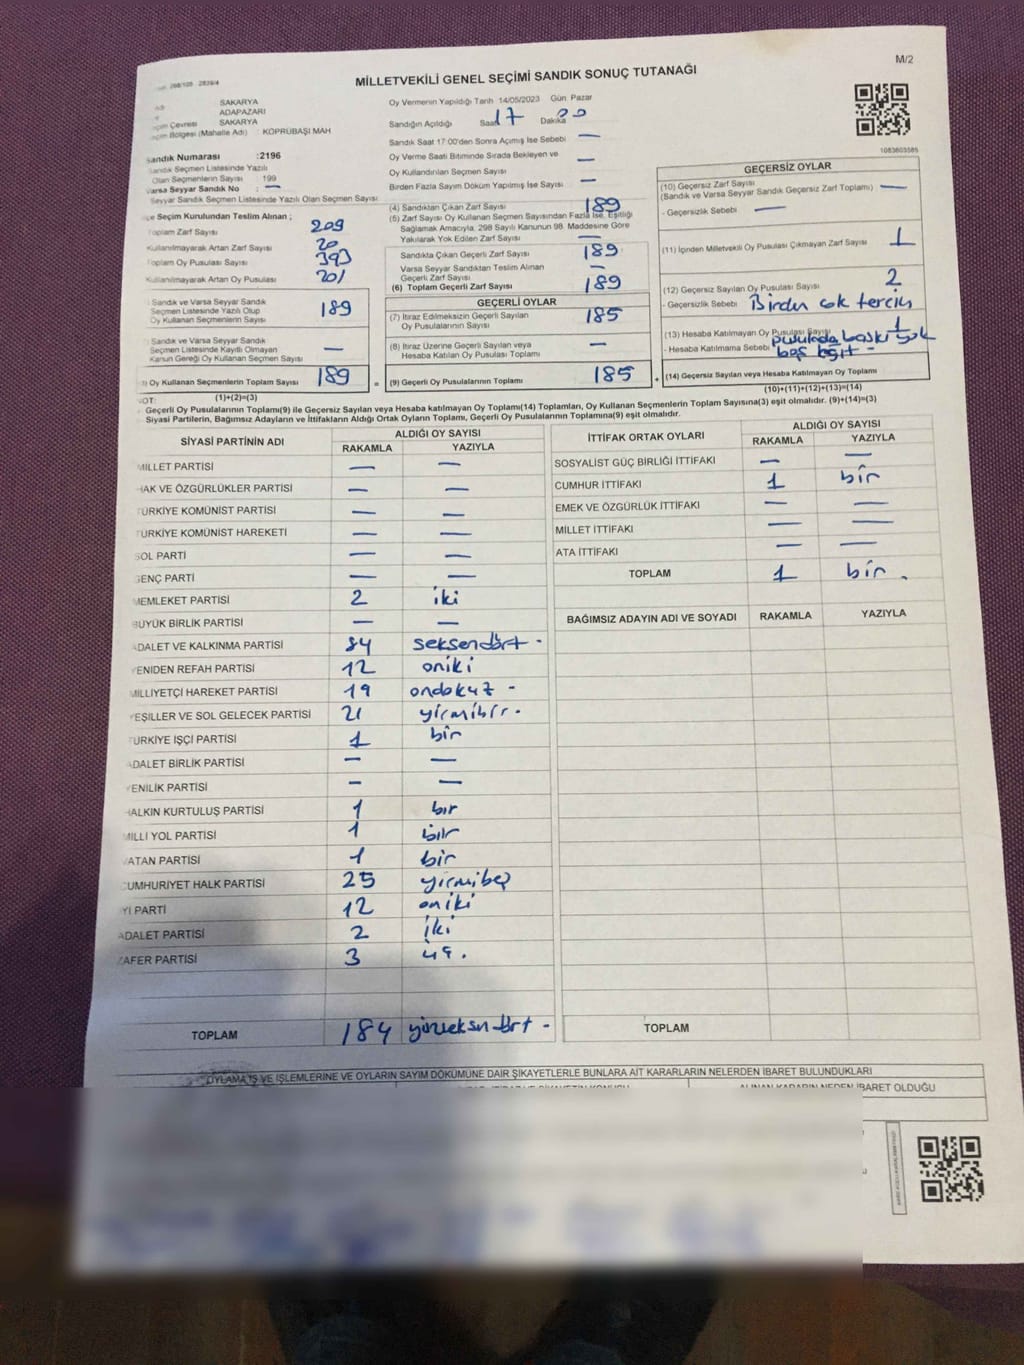 MİLLETVEKİLİ GENEL SEÇİMİ SANDIK SONUÇ TUTANAĞI
M/2
SAKARYA
ADAPAZARI
SAKARYA
(Mahalle Adı) : KÖPRÜBAŞI MAH
Sandık Numarası :2196
Sandık Seçmen Listesinde Yazılı
Olan Seçmenlerin Sayısı 199
Varsa Seyyar Sandık No : —
Seyyar Sandık Seçmen Listesinde Yazılı Olan Seçmen Sayısı
Seçim Kurulundan Teslim Alınan ;
Toplam Zarf Sayısı 209
Kullanılmayarak Artan Zarf Sayısı 20
Toplam Oy Pusulası Sayısı 393
Kullanılmayarak Artan Oy Pusulası 201
Sandık ve Varsa Seyyar Sandık
Seçmen Listesinde Yazılı Olup
Oy Kullanan Seçmenlerin Sayısı 189
Sandık ve Varsa Seyyar Sandık
Seçmen Listesinde Kayıtlı Olmayan
Kanun Gereği Oy Kullanan Seçmen Sayısı —
Oy Kullanan Seçmenlerin Toplam Sayısı 189
(1)+(2)=(3)
Oy Vermenin Yapıldığı Tarih 14/05/2023 Gün Pazar
Sandığın Açıldığı Saat 17 Dakika
Sandık Saat 17:00'den Sonra Açılmış İse Sebebi —
Oy Verme Saati Bitiminde Sırada Bekleyen ve
Oy Kullandırılan Seçmen Sayısı —
Birden Fazla Sayım Döküm Yapılmış İse Sayısı —
(4) Sandıktan Çıkan Zarf Sayısı 189
(5) Zarf Sayısı Oy Kullanan Seçmen Sayısından Fazla İse, Eşitliği
Sağlamak Amacıyla, 298 Sayılı Kanunun 98. Maddesine Göre
Yakılarak Yok Edilen Zarf Sayısı —
Sandıkta Çıkan Geçerli Zarf Sayısı 189
Varsa Seyyar Sandıktan Teslim Alınan
Geçerli Zarf Sayısı —
(6) Toplam Geçerli Zarf Sayısı 189
GEÇERLİ OYLAR
(7) İtiraz Edilmeksizin Geçerli Sayılan
Oy Pusulalarının Sayısı 185
(8) İtiraz Üzerine Geçerli Sayılan veya
Hesaba Katılan Oy Pusulası Toplamı —
(9) Geçerli Oy Pusulalarının Toplamı 185
1083603585
GEÇERSİZ OYLAR
(10) Geçersiz Zarf Sayısı
(Sandık ve Varsa Seyyar Sandık Geçersiz Zarf Toplamı) —
- Geçersizlik Sebebi —
(11) İçinden Milletvekili Oy Pusulası Çıkmayan Zarf Sayısı 1
(12) Geçersiz Sayılan Oy Pusulası Sayısı 2
- Geçersizlik Sebebi Birden çok tercih
(13) Hesaba Katılmayan Oy Pusulası Sayısı 1
- Hesaba Katılmama Sebebi pusulada baskı yok
boş kağıt -
(14) Geçersiz Sayılan veya Hesaba Katılmayan Oy Toplamı
(10)+(11)+(12)+(13)=(14)
NOT:
Geçerli Oy Pusulalarının Toplamı(9) ile Geçersiz Sayılan veya Hesaba katılmayan Oy Toplamı(14) Toplamları, Oy Kullanan Seçmenlerin Toplam Sayısına(3) eşit olmalıdır. (9)+(14)=(3)
Siyasi Partilerin, Bağımsız Adayların ve İttifakların Aldığı Ortak Oyların Toplamı, Geçerli Oy Pusulalarının Toplamına(9) eşit olmalıdır.
SİYASİ PARTİNİN ADI ALDIĞI OY SAYISI
RAKAMLA YAZIYLA
MİLLET PARTİSİ — —
HAK VE ÖZGÜRLÜKLER PARTİSİ — —
TÜRKİYE KOMÜNİST PARTİSİ — —
TÜRKİYE KOMÜNİST HAREKETİ — —
SOL PARTİ — —
GENÇ PARTİ — —
MEMLEKET PARTİSİ 2 iki
BÜYÜK BİRLİK PARTİSİ — —
ADALET VE KALKINMA PARTİSİ 84 seksendört -
YENİDEN REFAH PARTİSİ 12 oniki
MİLLİYETÇİ HAREKET PARTİSİ 19 ondokuz -
YEŞİLLER VE SOL GELECEK PARTİSİ 21 yirmibir.
TÜRKİYE İŞÇİ PARTİSİ 1 bir
ADALET BİRLİK PARTİSİ — —
YENİLİK PARTİSİ — —
HALKIN KURTULUŞ PARTİSİ 1 bir
MİLLİ YOL PARTİSİ 1 bir
VATAN PARTİSİ 1 bir
CUMHURİYET HALK PARTİSİ 25 yirmibeş
İYİ PARTİ 12 oniki
ADALET PARTİSİ 2 iki
ZAFER PARTİSİ 3 üç.
TOPLAM 184 yüzseksendört -
İTTİFAK ORTAK OYLARI ALDIĞI OY SAYISI
RAKAMLA YAZIYLA
SOSYALİST GÜÇ BİRLİĞİ İTTİFAKI — —
CUMHUR İTTİFAKI 1 bir
EMEK VE ÖZGÜRLÜK İTTİFAKI — —
MİLLET İTTİFAKI — —
ATA İTTİFAKI — —
TOPLAM 1 bir.
BAĞIMSIZ ADAYIN ADI VE SOYADI RAKAMLA YAZIYLA
TOPLAM
OYLAMA İŞ VE İŞLEMLERİNE VE OYLARIN SAYIM DÖKÜMÜNE DAİR ŞİKAYETLERLE BUNLARA AİT KARARLARIN NELERDEN İBARET BULUNDUKLARI
ALINAN KARARIN NEDEN İBARET OLDUĞU